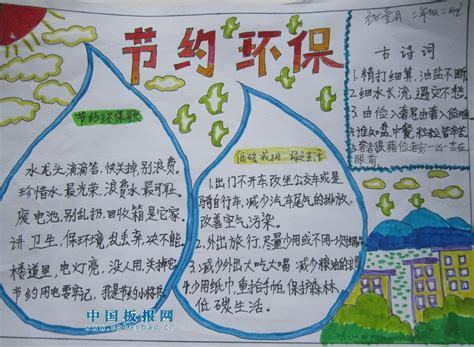 节约环保
二年级二班
节约环保歌
水龙头,滴滴答,快关掉,别浪费。
珍惜水,最光荣,浪费水,最可耻。
废电池,别乱扔,回收箱是它家。
讲卫生,保环境,乱丢弃,决不能。
楼道里,电灯亮,没人用,关掉它
节约用电要牢记,我是节约小标兵
低碳减排 绿色生活
1.出门不开车改坐公交车或是
骑自行车,减少汽车尾气的排放
改善空气污染。
2.外出旅行,尽量少用或不用一次
3.减少外出大吃大喝
4.少用纸巾,重拾手帕,保护森林
低碳生活。
古诗词
1.精打细算,油盐不断
2.细水长流,遇灾不愁
3.由俭入奢易由奢入俭难
谁知盘中餐,粒粒皆辛苦
眼前。
中国板报网